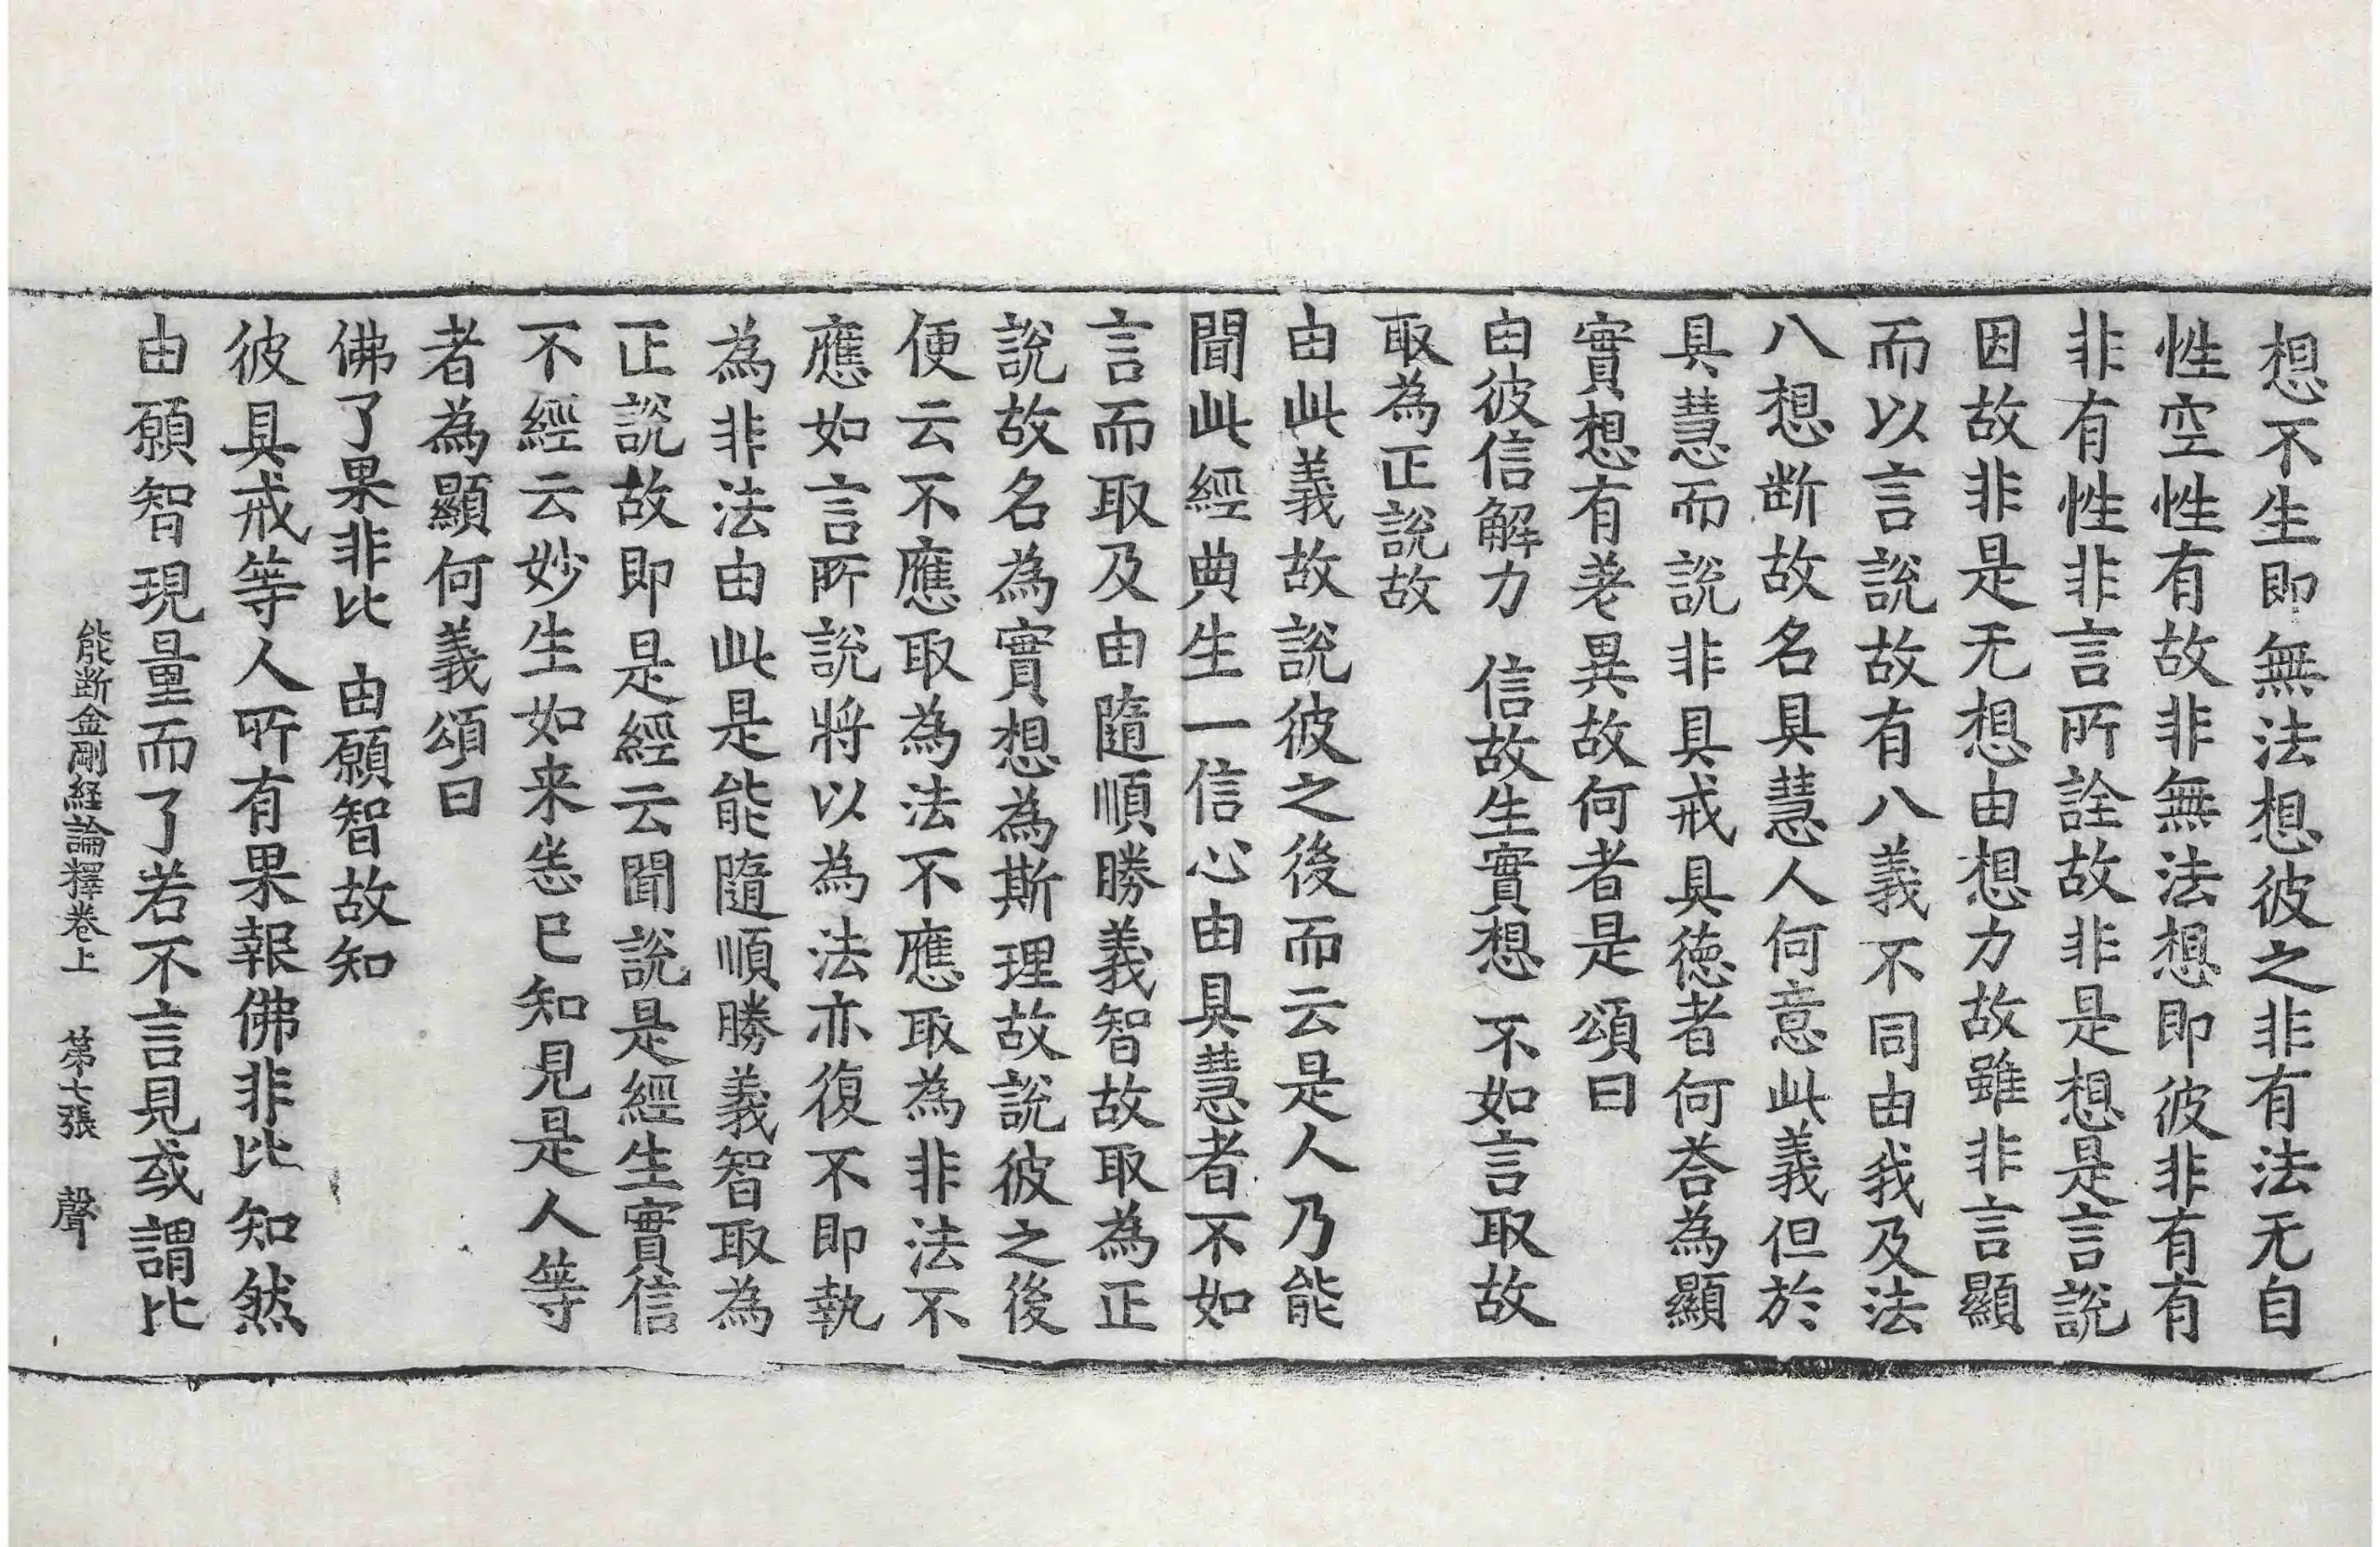 想不生即無法想彼之非有法无自
性空性有故非無法想即彼非有有
非有性非言所詮故非是想是言說
因故非是无想由想力故雖非言顯
而以言說故有八義不同由我及法
八想断故名具慧人何意此義但於
具慧而說非具戒具徳者何荅為顯
實想有差異故何者是頌曰
由彼信解力　信故生實想　不如言取故
取為正說故
由此義故說彼之後而云是人乃能
聞此經典生一信心由具慧者不如
言而取及由隨順勝義智故取為正
說故名為實想為斯理故說彼之後
便云不應取為法不應取為非法不
應如言所說將以為法亦復不即執
為非法由此是能隨順勝義智取為
正說故即是經云聞說是經生實信
不經云妙生如来悉已知見是人等
者為顯何義頌曰
佛了果非比　由願智故知
彼具戒等人所有果報佛非比知然
由願智現量而了若不言見或謂比
能断金剛経論釋卷上　第七張　聲